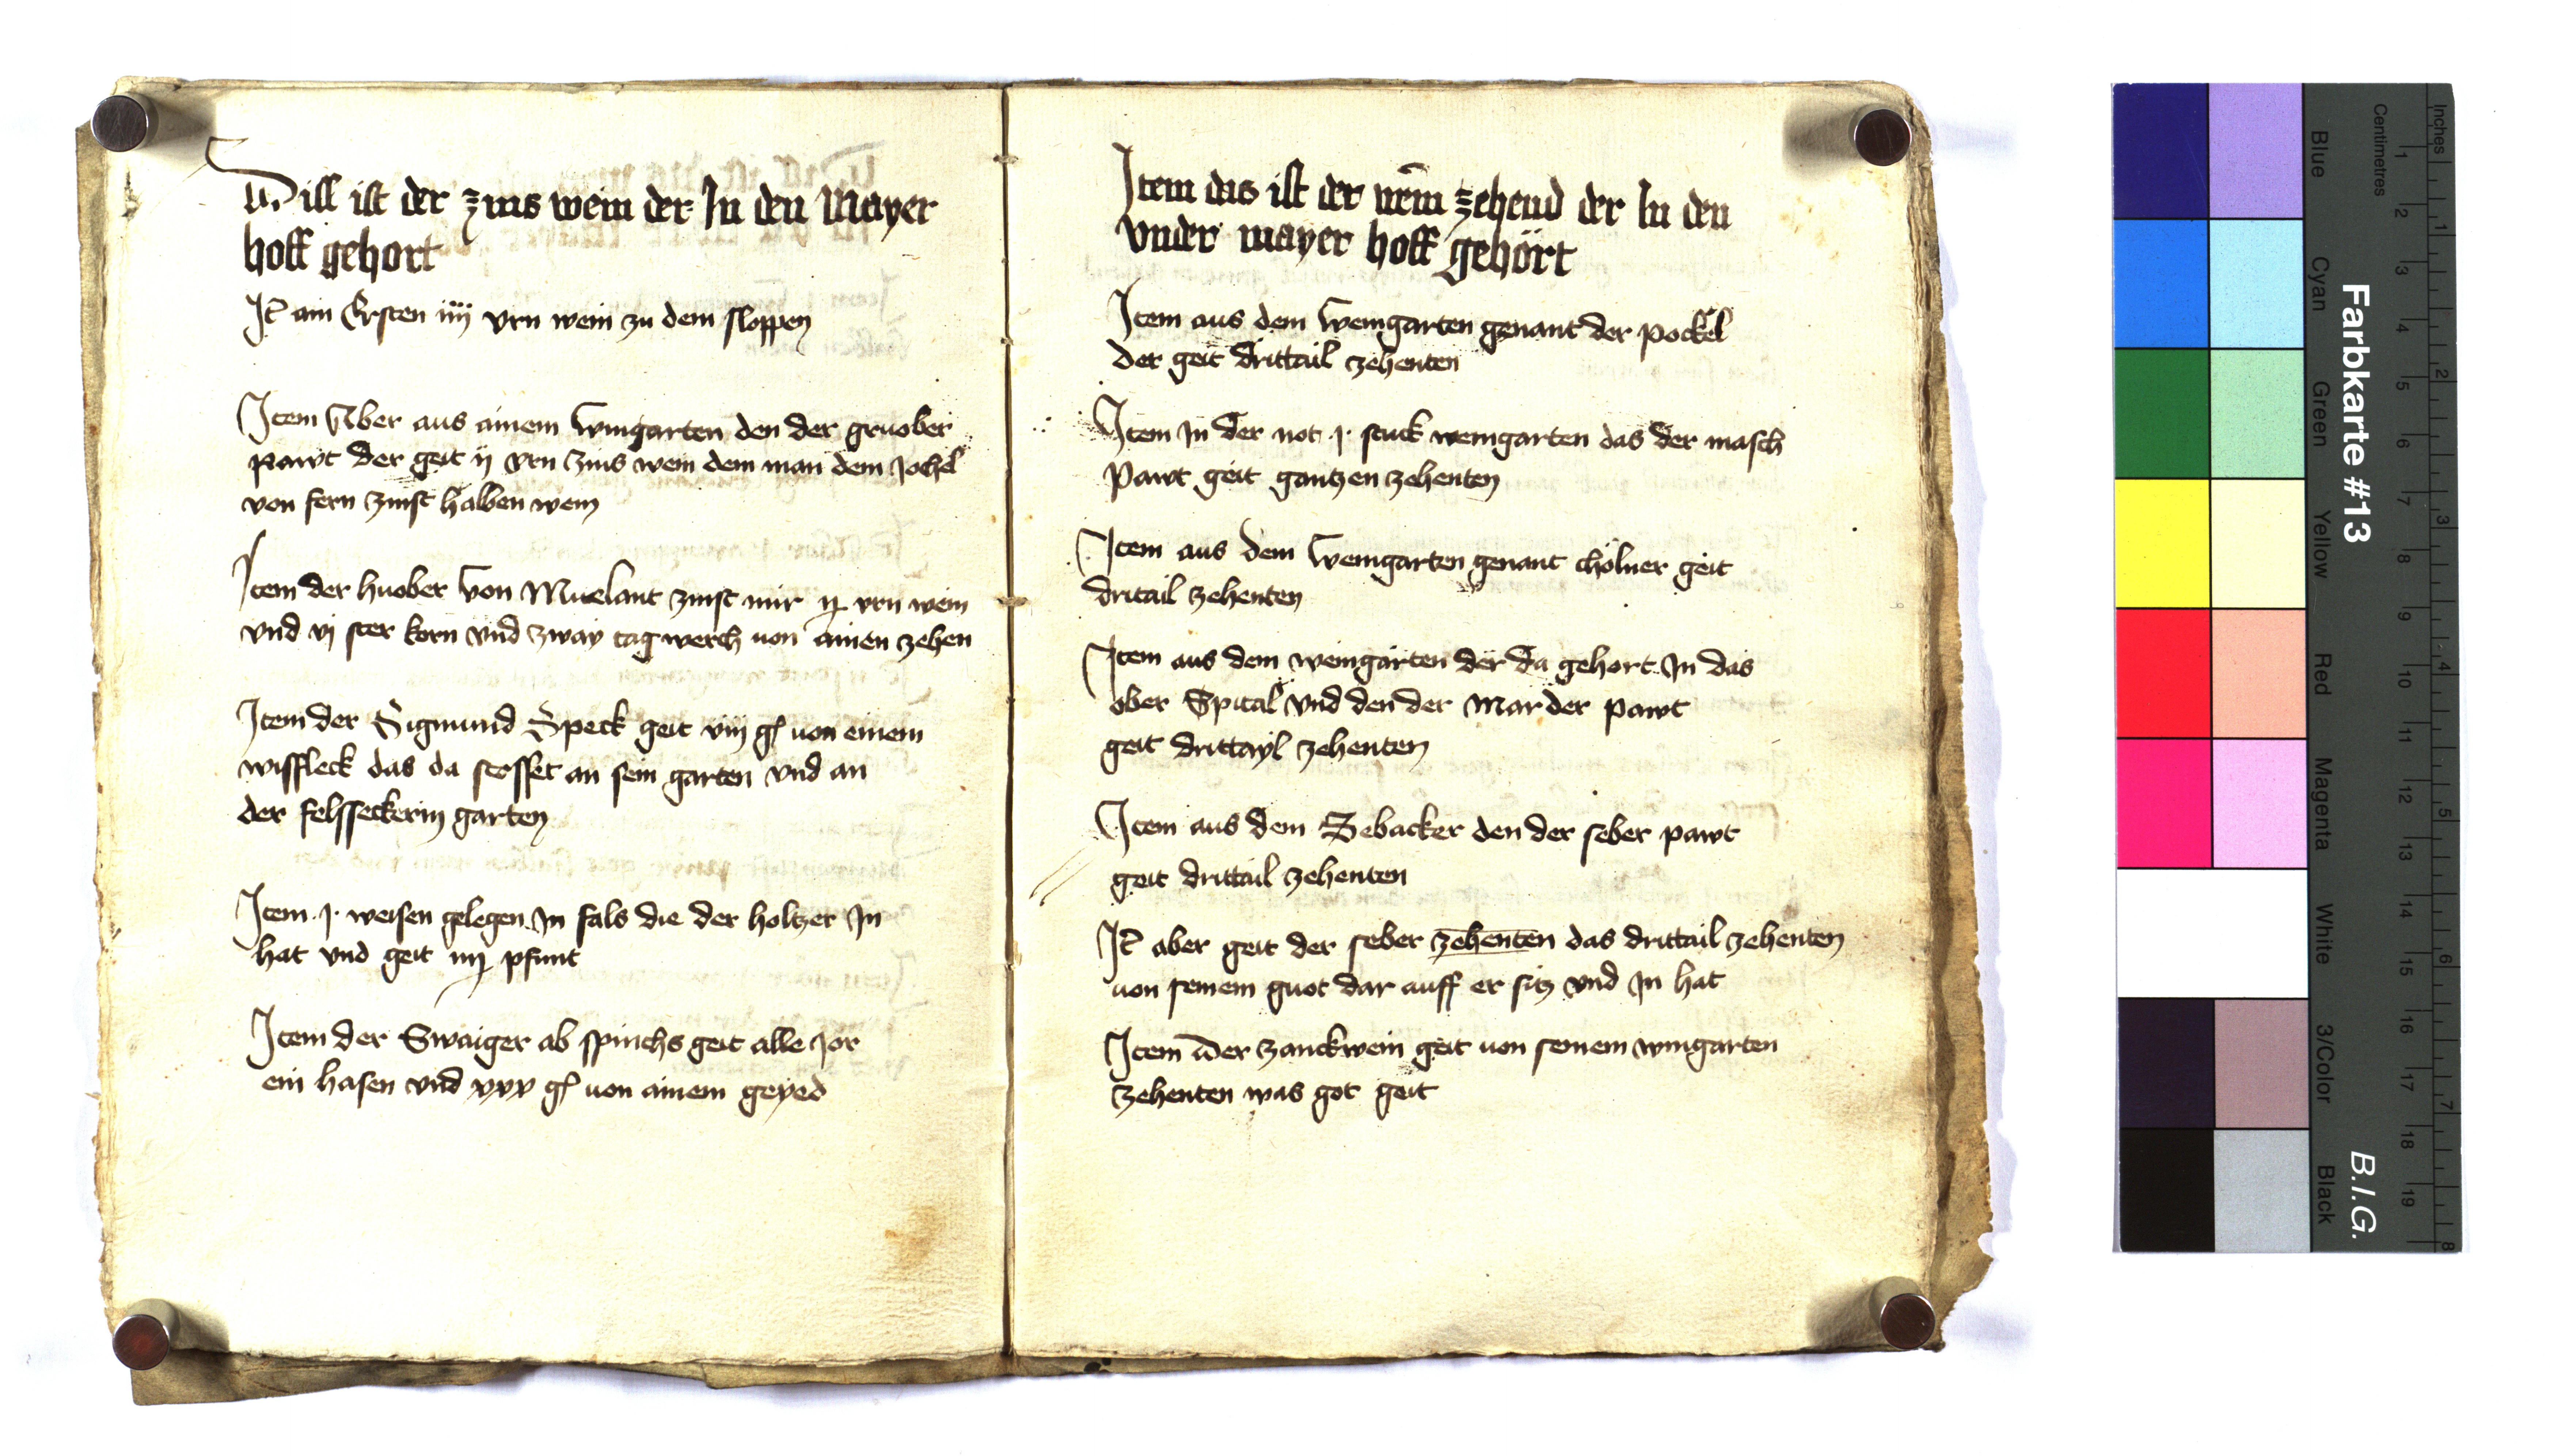 Diss ist der zins wein der In den Mayer
hoff gehort
It̄ am Ersten iiij vrn wein zu dem sloppen
Item Aber aus ainem wingarten den der gruober
pawt der geit ij vrn zins wein dem man dem Jochel
von fern zinst halben wein
Item der huober von Muelant zinst mir ij vrn wein
vnd vj ster korn vnd zway tagwerch von ainen zehen
Item der Sigmund Speck geit viij gl von einem
wissfleck das da stosset an sein garten vnd an
der felsseckerin garten
Item .j. weisen gelegen In fals die der holtzer In
hat vnd geit iiij pfunt
Item der Swaiger ab spinchs geit alle Jor
ein hasen vnd xxx gl von ainem geyed
Item das ist der wein zehend der In den
vnder mayer hoff gehört
Item aus dem weingarten genant der pockel
der geit drittail zehenten
Item In der not .j. stuck weingarten das der masch
pawt geit gantzen zehenten
Item aus dem weingarten genant chölner geit
dritail zehenten
Item aus dem weingarten der da gehort In das
ober Spital vnd den der Marder pawt
geit drittayl zehenten
Item aus dem Sebacker den der seber pawt
geit drittail zehenten
It̄ aber geit der seber zehenten das drittail zehenten
von seinem guot dar auff er sitz vnd In hat
Item der zanckwein geit von seinem wingarten
zehenten was got geit
Farbkarte #13
B.I.G.
Inches
Centimetres
1 2 3 4 5 6 7 8
1 2 3 4 5 6 7 8 9 10 11 12 13 14 15 16 17 18 19
Blue
Cyan
Green
Yellow
Red
Magenta
White
3/Color
Black